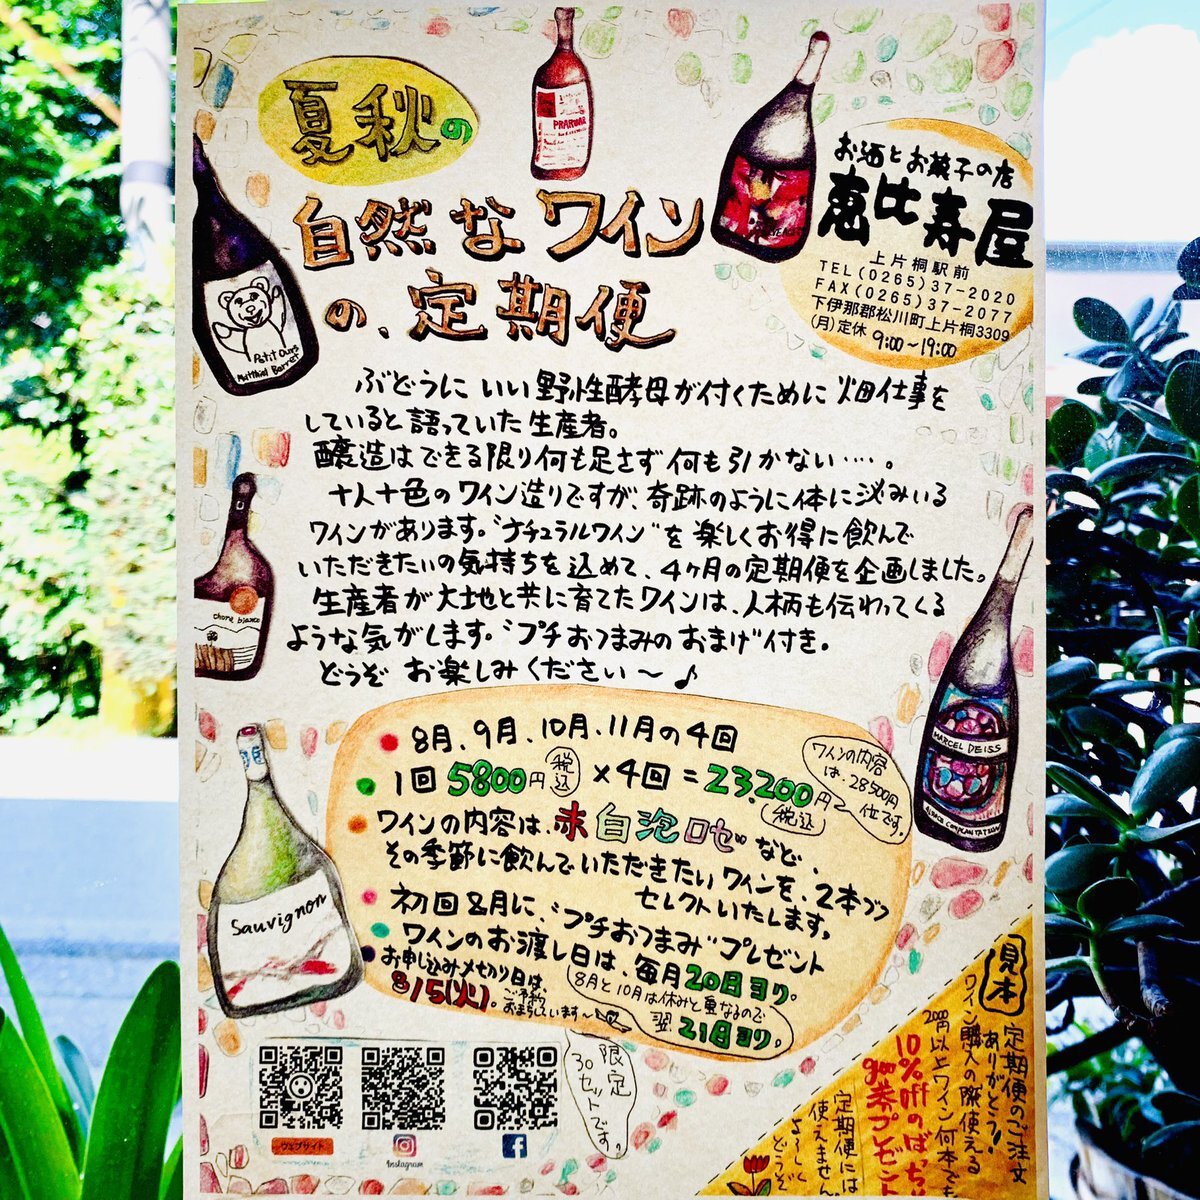 夏秋の
自然なワイン
の、定期便
お酒とお菓子の店
恵比寿屋
上片桐駅前
TEL(0265)37-2020
FAX(0265)37-2077
下伊那郡松川町上片桐3309
(月)定休 9:00~19:00
PRARUAR
Petit Ours
Matthial Barret
chore bianco
Sauvignon
MARCEL DEISS
ALSACE COMPLANTATION
ぶどうにいい野性酵母が付くために畑仕事を
していると語っていた生産者。
醸造はできる限り何も足さず何も引かない……。
十人十色のワイン造りですが、奇跡のように体に沁みいる
ワインがあります。“ナチュラルワイン”を楽しくお得に飲んで
いただきたいの気持ちを込めて、4ヶ月の定期便を企画しました。
生産者が大地と共に育てたワインは、人柄も伝わってくる
ような気がします。“プチおつまみのおまけ”付き。
どうぞ お楽しみください〜♪
●8月、9月、10月、11月の4回
●1回5800円(税込)×4回=23.200円(税込)
ワインの内容
は、28500円
位です。
●ワインの内容は、赤白泡ロゼなど、
その季節に飲んでいただきたいワインを、2本づつ
セレクトいたします。
●初回8月に、“プチおつまみ”プレゼント
●ワインのお渡し日は、毎月20日ヨリ。
8月と10月は休みと重なるので
翌21日ヨリ。
●お申し込みメセカリ日は、
8/5(火)。ご予約
お待ちしています〜
限定
30セットです。
ウェブサイト
Instagram
見本
定期便のご注文
ありがとう!
ワイン購入の際使える
2000円以上ワイン何本でも
10%offの
goo券プレゼント
定期便には
使えません。
よろしく
どうぞ